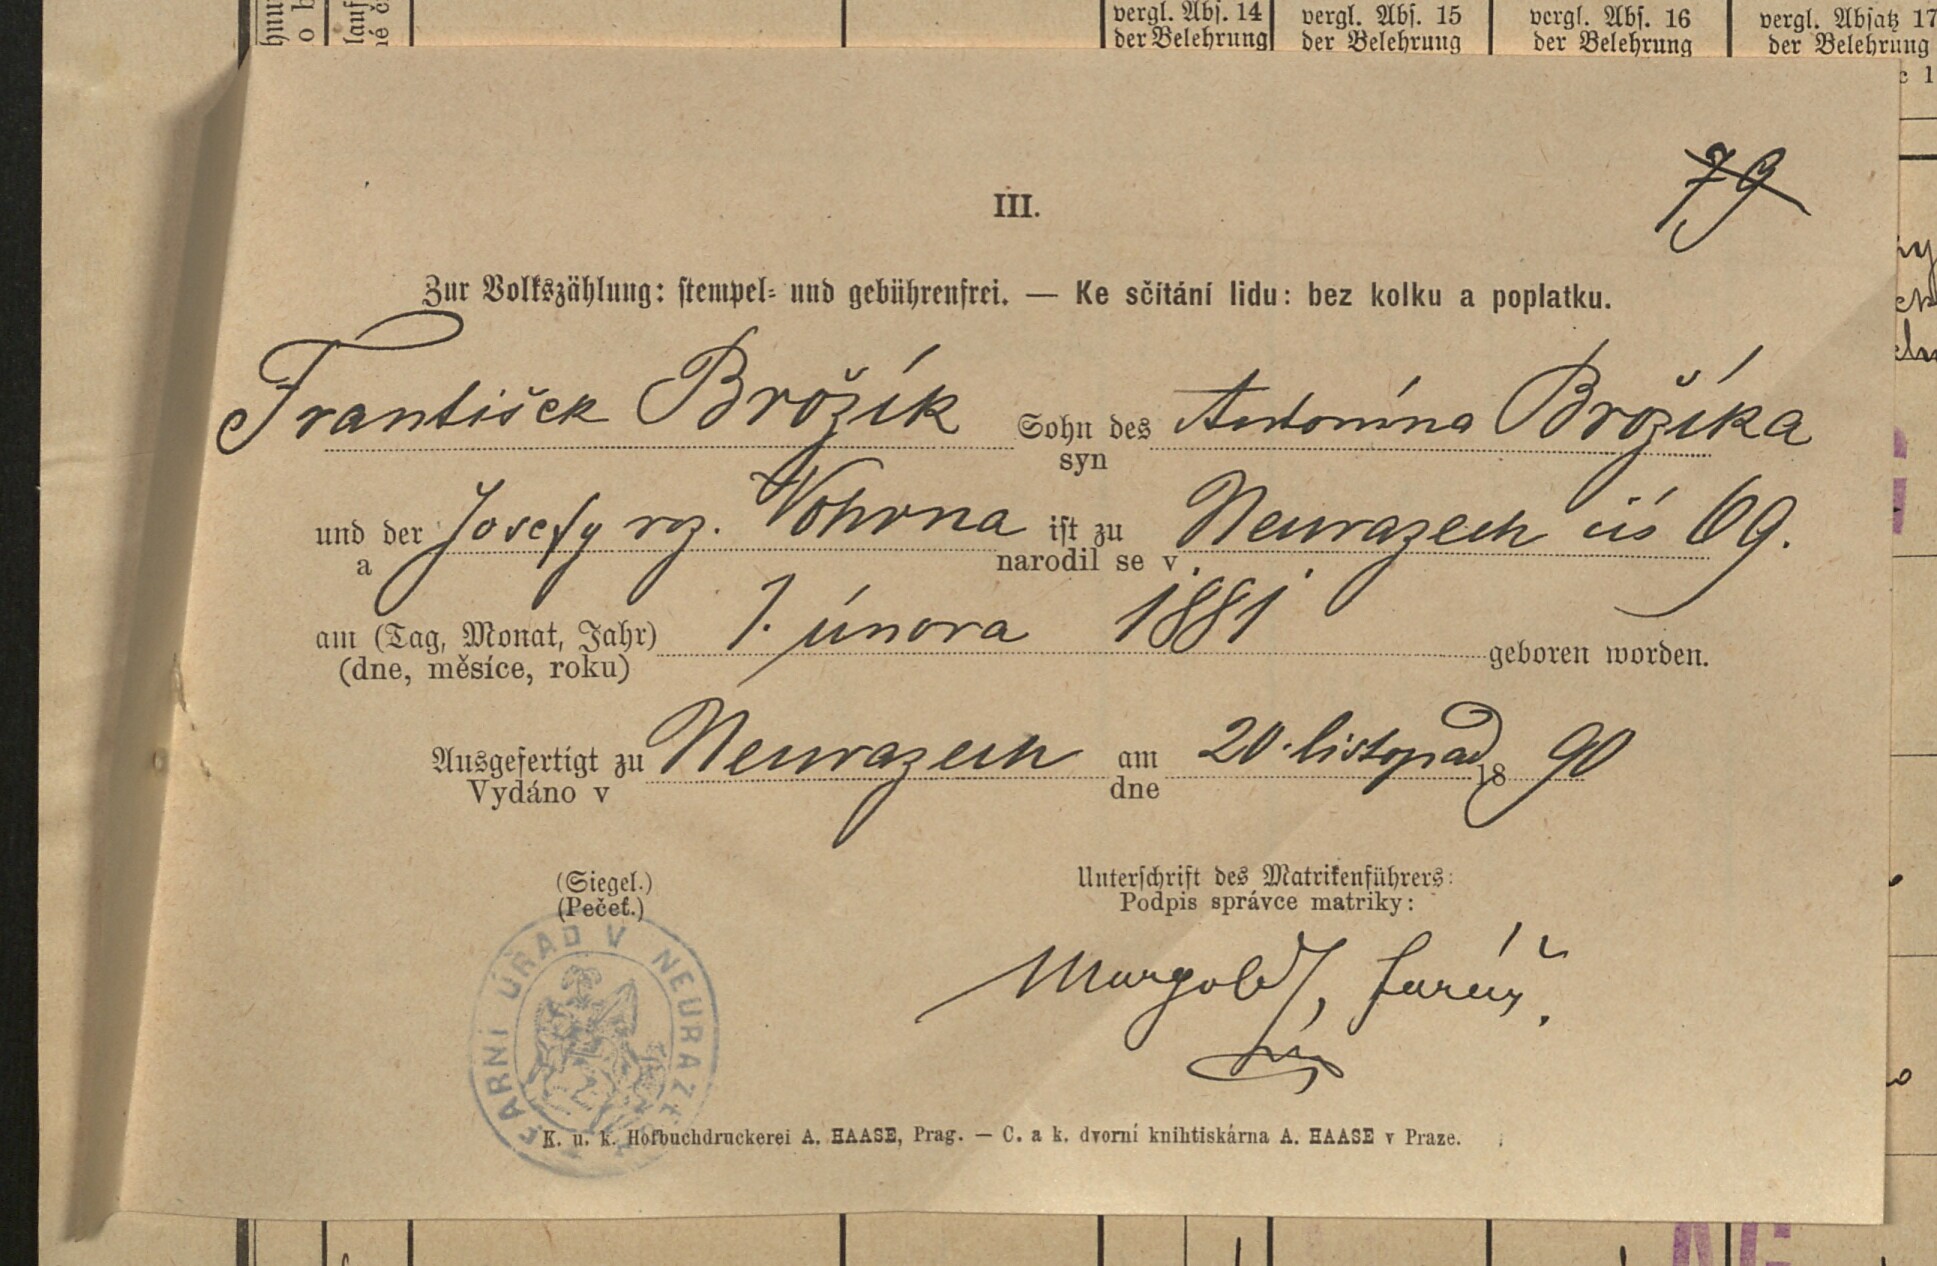 vergl. Abs. 14 vergl. Abs. 15 vergl. Abs. 16 vergl. Absatz 17
der Belehrung der Belehrung der Belehrung der Belehrung
79
III.
Zur Volkszählung: stempel- und gebührenfrei. — Ke sčítání lidu: bez kolku a poplatku.
František Brožík Sohn des Antonína Brožíka
syn
und der Josefy roz. Vohrna ist zu Neurazech čís 69.
a narodil se v
am (Tag, Monat, Jahr) 1. února 1881 geboren worden.
(dne, měsíce, roku)
Ausgefertigt zu Neurazech am 20. listopad 1890
Vydáno v dne
(Siegel.) Unterschrift des Matrikenführers:
(Pečeť.) Podpis správce matriky:
FARNÍ ÚŘAD V NEURAZ
Margold, farář.
K. u. k. Hofbuchdruckerei A. HAASE, Prag. — C. a k. dvorní knihtiskárna A. HAASE v Praze.